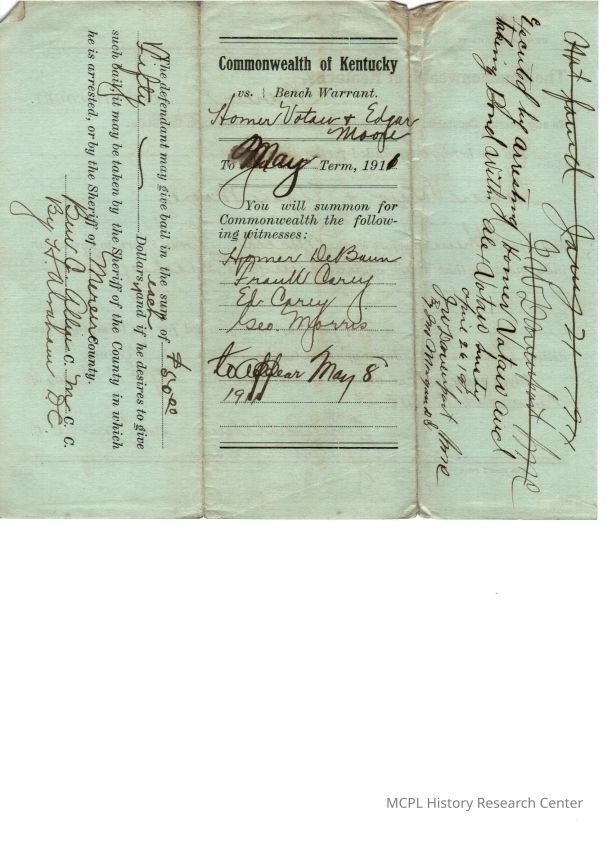 The defendant may give bail in the sum of $50.00
Fifty Dollars each and if he desires to give
such bail, it may be taken by the Sheriff of the County in which
he is arrested, or by the Sheriff of Mercer County.
Ben C. Allin C. M. C. C.
By H Graham D.C.
Commonwealth of Kentucky
vs. } Bench Warrant.
Homer Votaw & Edgar
Moore
To May Term, 1911
You will summon for
Commonwealth the follow-
ing witnesses:
Homer DeBaun
Frank Carey
Ed Carey
Geo. Morris
to appear May 8
1911
Not found
Executed by arresting Homer Votaw and
taking Bond with
April 26 1911
MCPL History Research Center